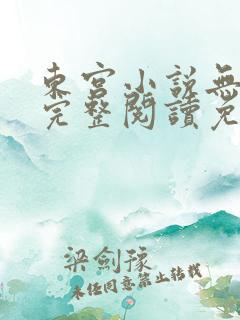 東宮小說無
完整閱讀免
梁劍豫
未經同意禁止轉載